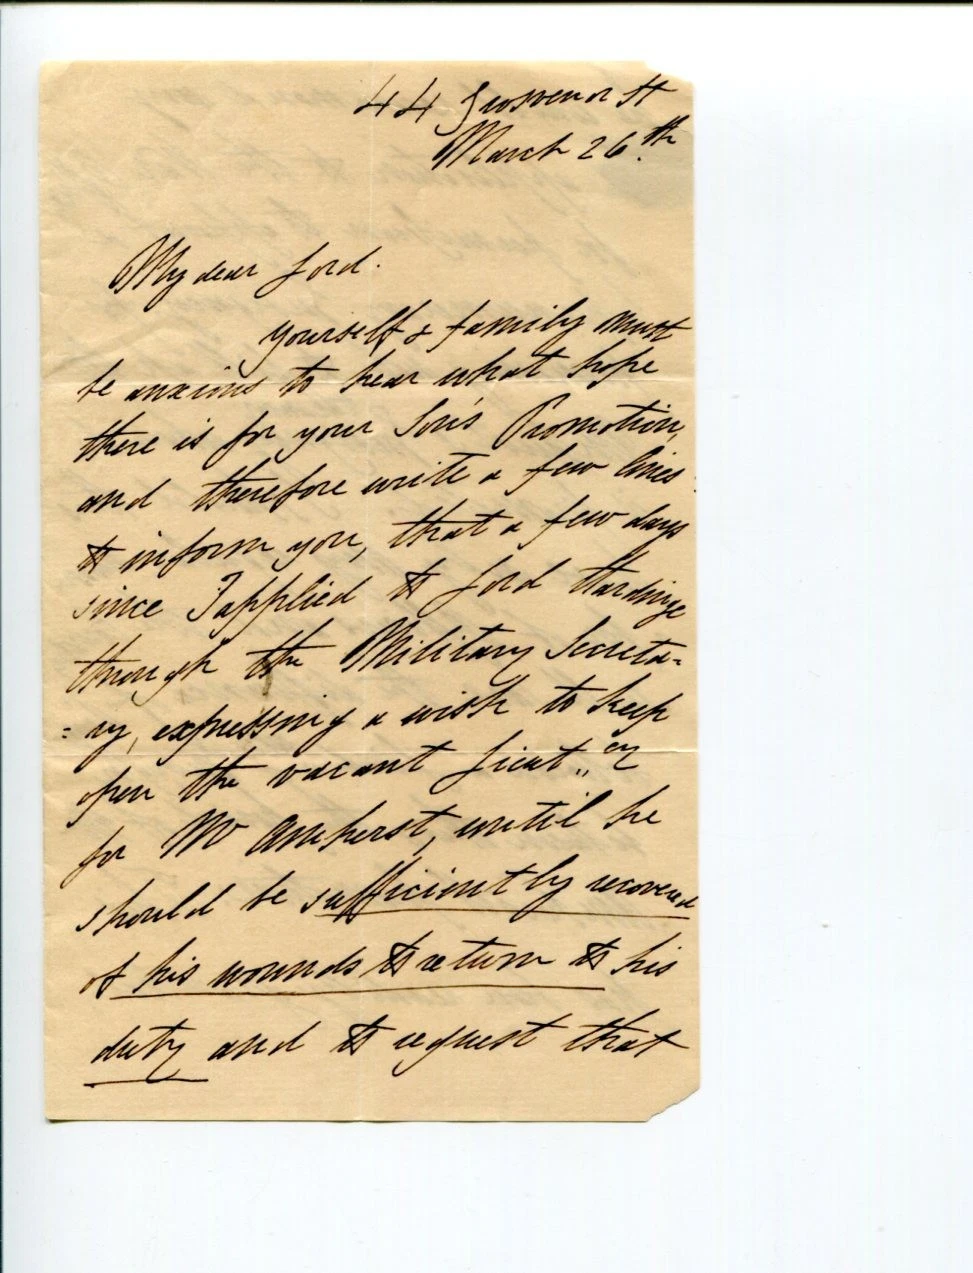 44 Grosvenor St
March 26th.
My dear Lord.
Yourself & family must
be anxious to hear what hope
there is for your Son's Promotion,
and therefore write a few lines
to inform you, that a few days
since I applied to Lord Hardinge
through the Military Secreta=
=ry, expressing a wish to keep
open the vacant Lieut,,cy
for Mr Amherst, until he
should be sufficiently recovered
of his wounds to return to his
duty and to request that